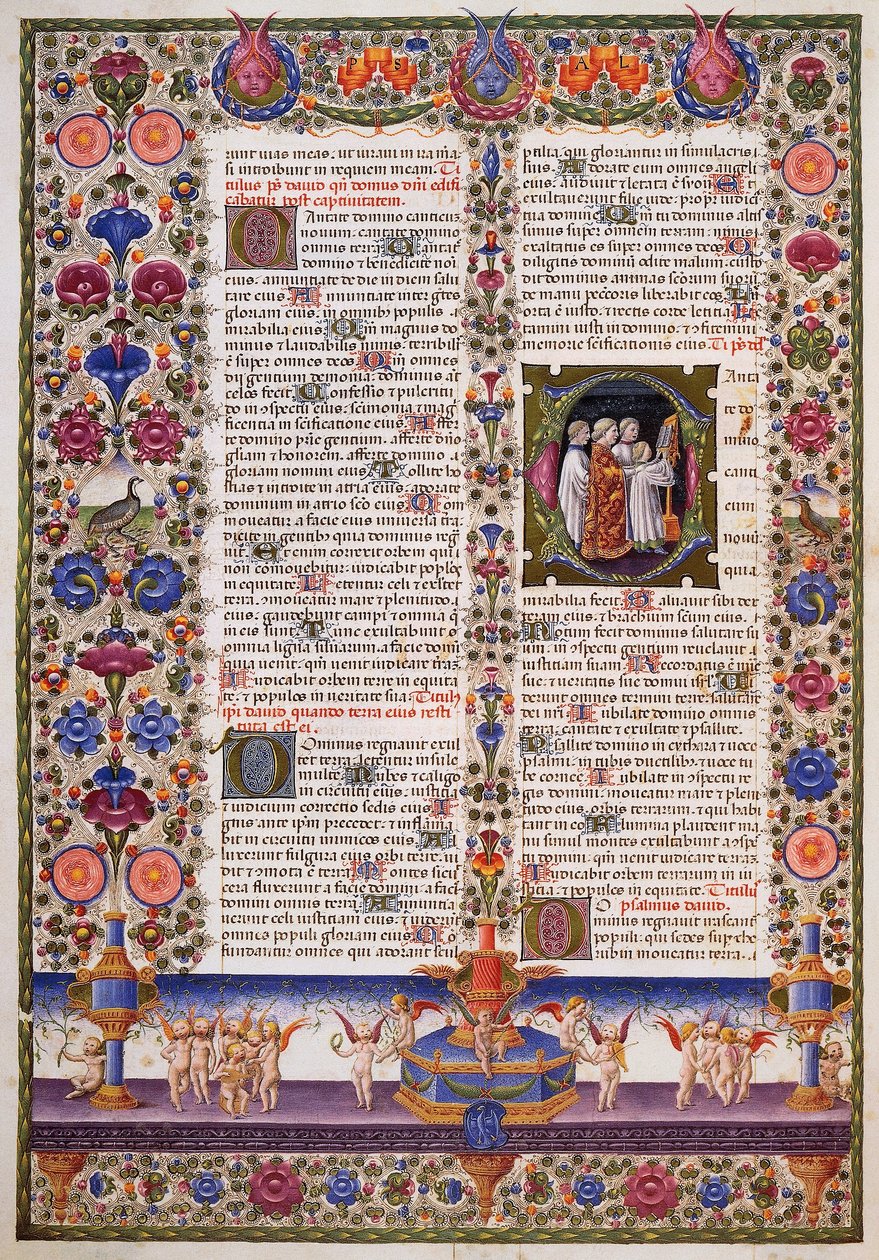 PS AL
runt vias meas. ut iuravi in ira mea.
si introibunt in requiem meam. Ti
tulus ps david qn domus dni edifi
cabatur post captivitatem.
Cantate domino canticus
novum. cantate domino
omnis terra. Cantate
domino et benedicite noi
eius. annuntiate de die in diem salu
tare eius. Annuntiate inter gtes
gloriam eius. in omnibus populis
mirabilia eius. Qm magnus do
minus et laudabilis nimis. terribilis
e super omnes deos. Qm omnes
dii gentium demonia. dominus at
celos fecit. Confessio et pulcritu
do in conspectu eius. scimonia et mag
ficentia in scificatione eius. Affer
te domino prie gentium. afferte dno
gliam et honorem. afferte domino
gloriam nomini eius. Tollite ho
stias et introite in atria eius. adorate
dominum in atrio sco eius. Com
moveatur a facie eius universa tra
dicite in gentibus quia dominus reg
vit. Et enim correxit orbem qui
non comovebitur. iudicabit poplos
in equitate. Letentur celi et exultet
terra. comoveatur mare et plenitudo
eius. gaudebunt campi et omnia que
in eis sunt. Tunc exultabunt o
omnia ligna silvarum. a facie domi
quia venit. qm venit iudicare terra
Iudicabit orbem terre in equita
te. et populos in veritate sua. Titulus
ipi david quando terra eius resti
tuta est ei.
Dominus regnavit exul
tet terra. letentur insule
multe. Nubes et caligo
in circuitu eius. iustitia et
iudicium correctio sedis eius. I
gnis ante ipm precedet. et inflama
bit in circuitu inimicos eius. Al
luxerunt fulgura eius orbi terre. vi
dit et mota e terra. Montes sicut
cera fluxerunt a facie domini. a facie
domini omnis terra. Annuntia
verunt celi iustitiam eius. et viderunt
omnes populi gloriam eius. Co
fundantur omnes qui adorant scul
ptilia. qui gloriantur in simulacris
suis. Adorate eum omnes angeli
eius. audivit et letata e syon. Et
exultaverunt filie iude. propter iudi
tia domine. Qm tu dominus altis
simus super omnem terram. nimis
exaltatus es super omnes deos. Qui
diligitis dominum odite malum. custo
dit dominus animas scorum suorum
de manu peccatoris liberabit eos. L
orta e iusto. et rectis corde letitia. L
mini iusti in domino. et confitemini
memorie scificationis eius. Ti ps dd
Canta
te do
mino
canti
cum
novum.
quia
mirabilia fecit. Salvavit sibi dex
tera eius. et brachium scum eius.
Notum fecit dominus salutare su
um. in conspectu gentium revelavit
iustitiam suam. Recordatus e mie
sue. et veritatis sue domui isrl. Vi
derunt omnes termini terre salutare
dei nri. Iubilate domino omnis
terra. cantate et exultate et psallite.
Psallite domino in cythara et voce
psalmi. in tubis ductilibus et voce tu
be cornee. Iubilate in conspectu re
gis domini. moveatur mare et pleni
tudo eius. orbis terrarum. et qui habi
tant in eo. Flumina plaudent ma
nu. simul montes exultabunt a conspe
ctu domini. qm venit iudicare terram.
Iudicabit orbem terrarum in iu
stitia. et populos in equitate. Titulus
psalmus david.
Dominus regnavit irascant
populi. qui sedes super che
rubim moveatur terra.